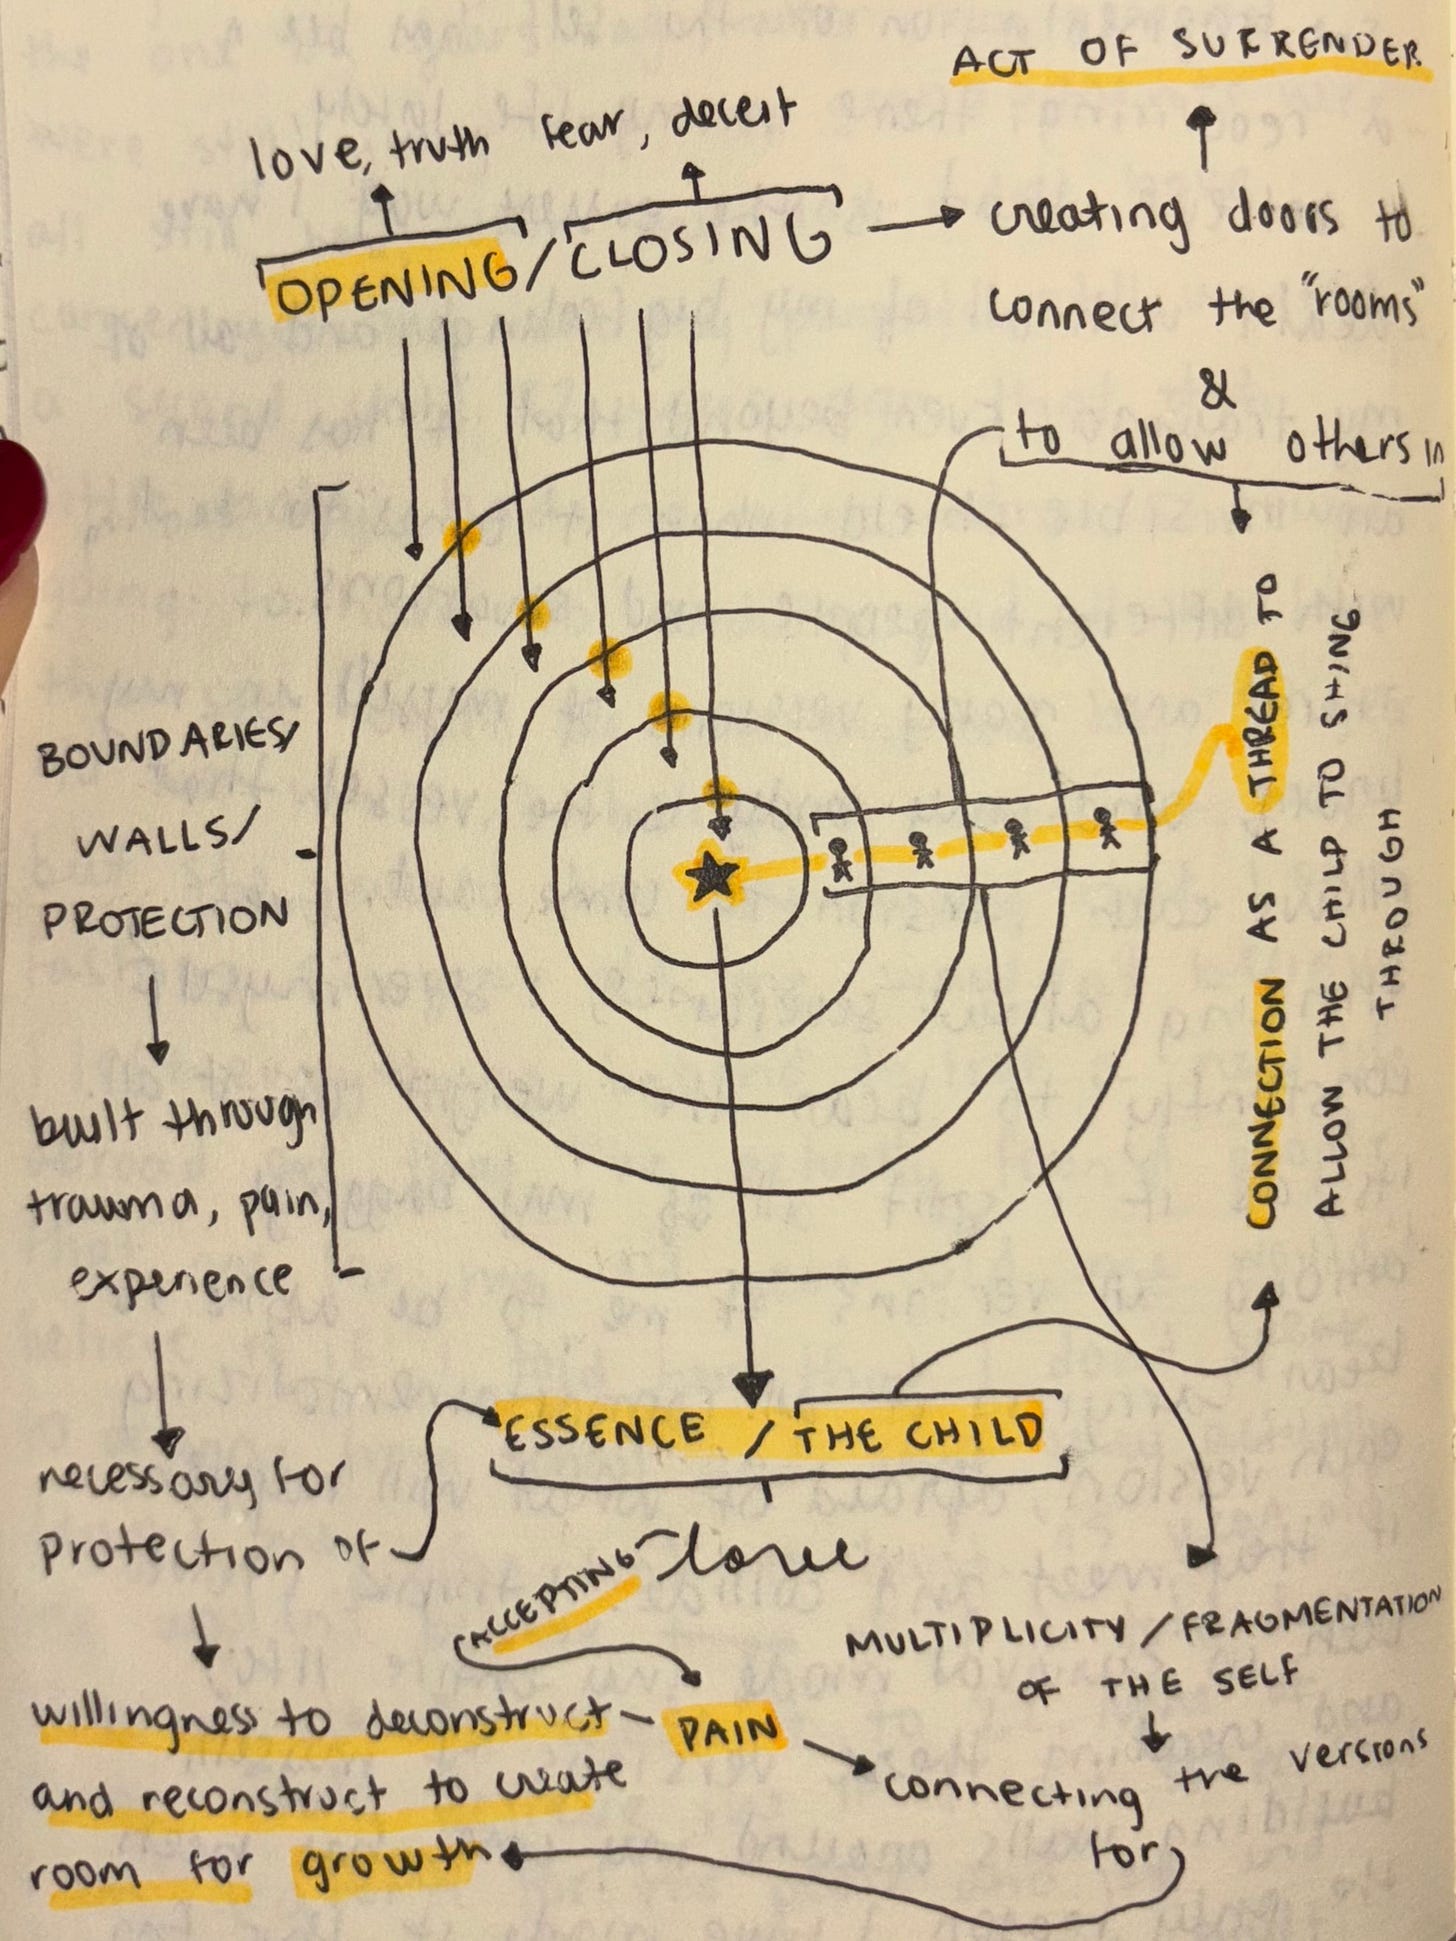 ACT OF SURRENDER
love, truth fear, deceit
OPENING/CLOSING
creating doors to
connect the "rooms"
&
to allow others in
CONNECTION AS A THREAD TO
ALLOW THE CHILD TO SHINE
THROUGH
BOUNDARIES/
WALLS/
PROTECTION
built through
trauma, pain,
experience
necessary for
protection of
ESSENCE / THE CHILD
love
ACCEPTING
willingness to deconstruct – PAIN
and reconstruct to create
room for growth
MULTIPLICITY / FRAGMENTATION
OF THE SELF
connecting the versions
for